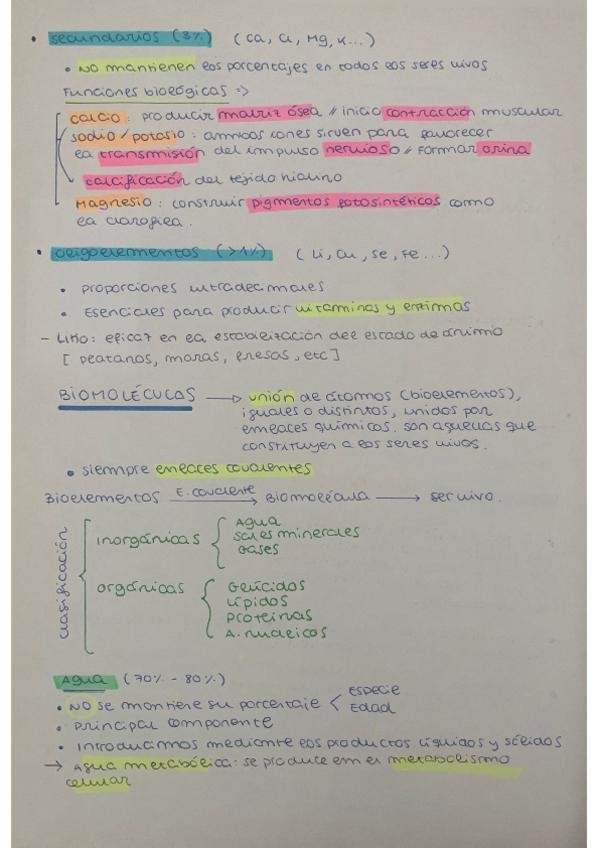 • secundarios (3%) (Ca, Cl, Mg, K...)
• NO mantienen los porcentajes en todos los seres vivos
Funciones biológicas =>
calcio: producir matriz ósea // inicio contracción muscular
sodio / potasio: ambos iones sirven para favorecer
la transmisión del impulso nervioso // Formar orina
calcificación del tejido hialino
Magnesio: construir pigmentos fotosintéticos como
la clorofila.
• oligoelementos (>1%) (Li, Cu, Se, Fe...)
• proporciones intradecimales
• Esenciales para producir vitaminas y enzimas
- Litio: eficaz en la estabilización del estado de ánimo
[ platanos, moras, fresas, etc ]
BIOMOLÉCULAS → unión de átomos (bioelementos),
iguales o distintos, unidos por
enlaces químicos. son aquellas que
constituyen a los seres vivos.
• siempre enlaces covalentes
Bioelementos E. covalente → Biomolécula → ser vivo.
clasificación
inorgánicas { Agua
sales minerales
Gases
orgánicas { Glúcidos
Lípidos
Proteínas
A. nucleicos
Agua (70% - 80%)
• NO se mantiene su porcentaje < Especie
Edad
• Principal componente
• Introducimos mediante los productos líquidos y sólidos
→ Agua metabólica: se produce em el metabolismo
celular